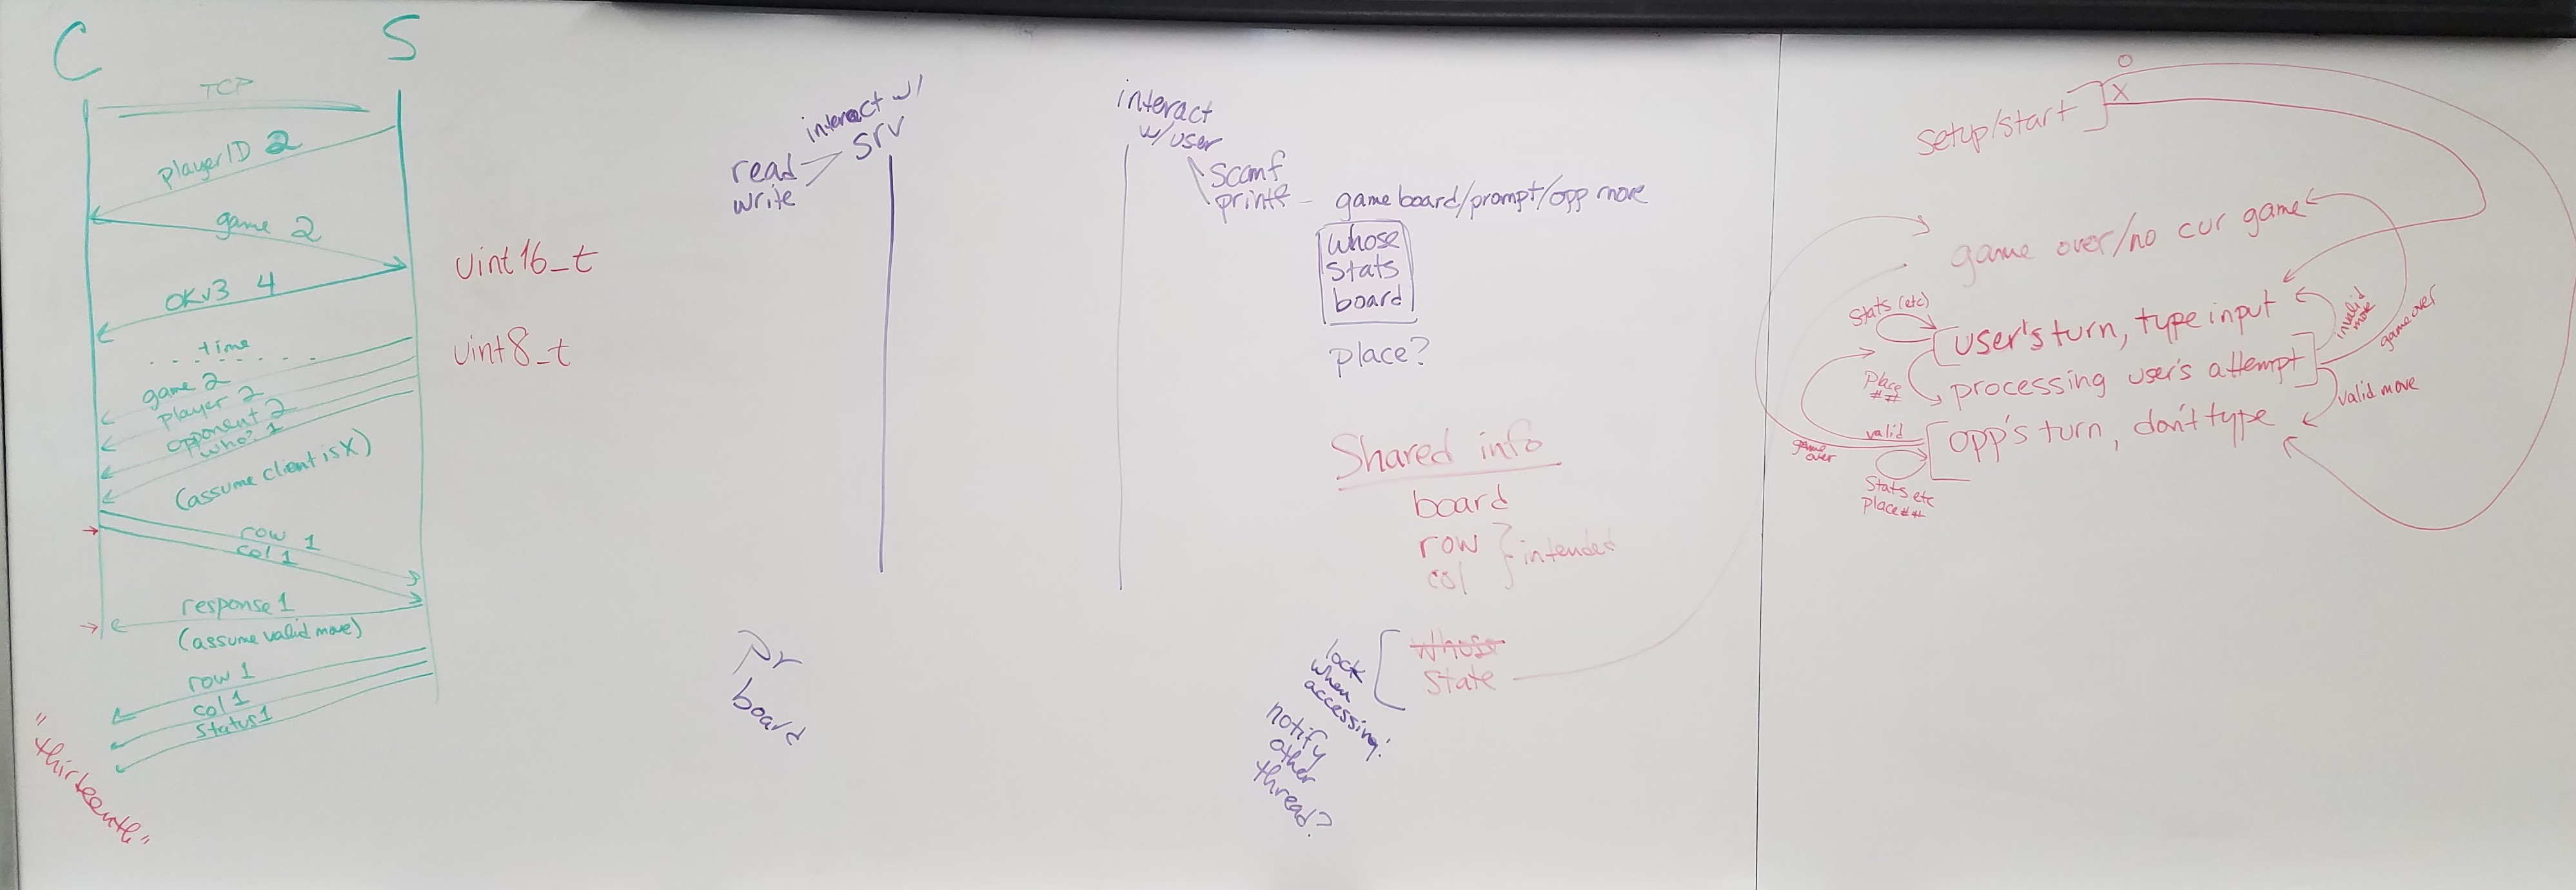 C S
TCP
playerID 2
game 2
OKv3 4
time
game 2
player 2
opponent 2
who? 1
(assume client is X)
row 1
col 1
response 1
(assume valid move)
row 1
col 1
status 1
"thirteenth"
uint16_t
uint8_t
interact w/
srv
read
write
pr
board
interact
w/user
scanf
printf - game board/prompt/opp move
whose
stats
board
place?
Shared info
board
row
col
intended
whose
state
lock
when
accessing!
notify
other
thread?
setup/start
O
X
game over/no cur game
Stats (etc)
user's turn, type input
invalid
move
game over
Place
##
processing user's attempt
valid move
valid
opp's turn, don't type
game
over
Stats etc
Place ##